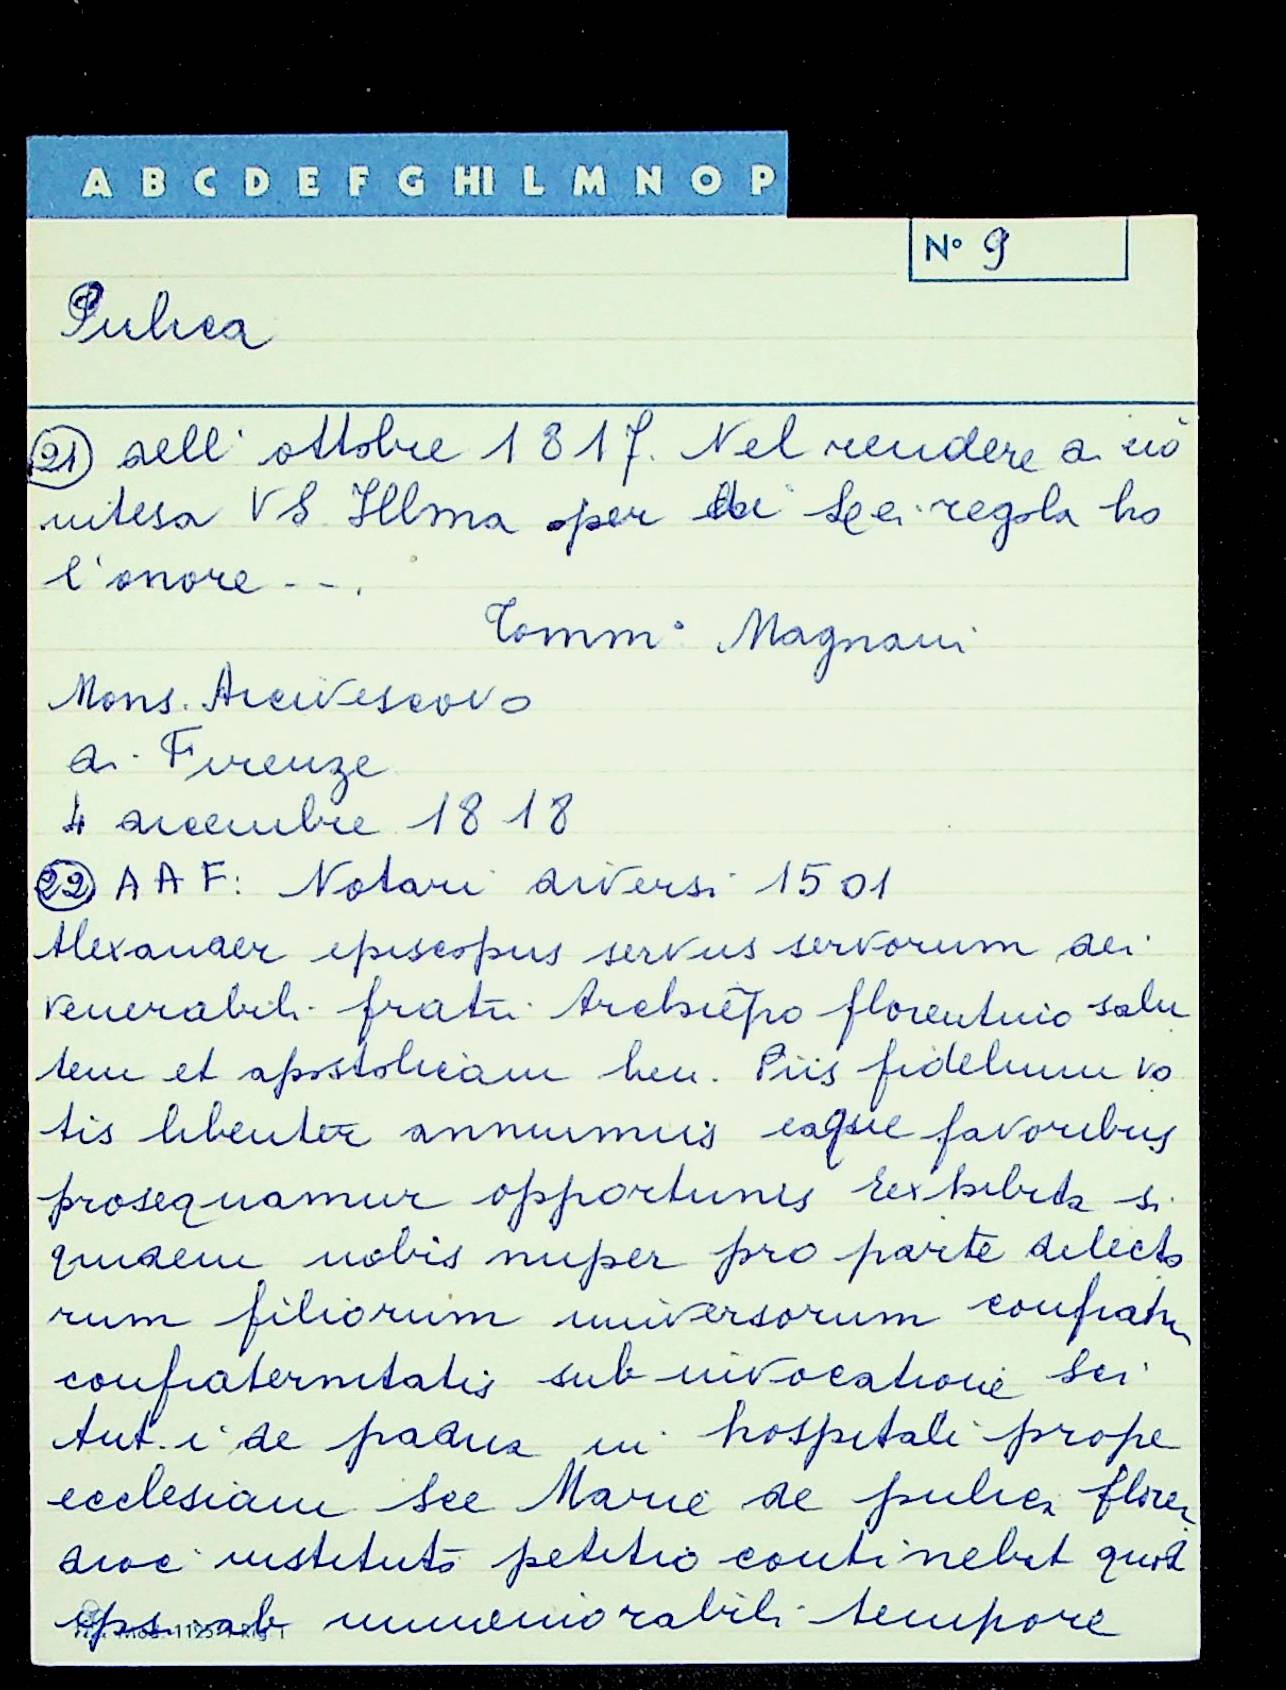 A B C D E F G HI L M N O P
N° 9
Pulica
21 dell' ottobre 1817. Nel rendere di ciò
intesa VS Illma per di Lei regola ho
l'onore --.
Tomm° Magnani
Mons. Arcivescovo
di Firenze
4 dicembre 1818
22 A A F: Notari diversi 1501
Alexander episcopus servus servorum dei
venerabili fratri Archiepo florentino salu
tem et apostolicam ben. Piis fidelium vo
tis libenter annuimus eaque favoribus
prosequamur opportunis Exhibita si
quidem nobis nuper pro parte dilecto
rum filiorum universorum confratr
confraternitatis sub invocatione Sci
Ant. i de padua in hospitali prope
ecclesiam See Marie de pulica floren
dioc instituto petitio continebat quod
ips ab immemorabili tempore